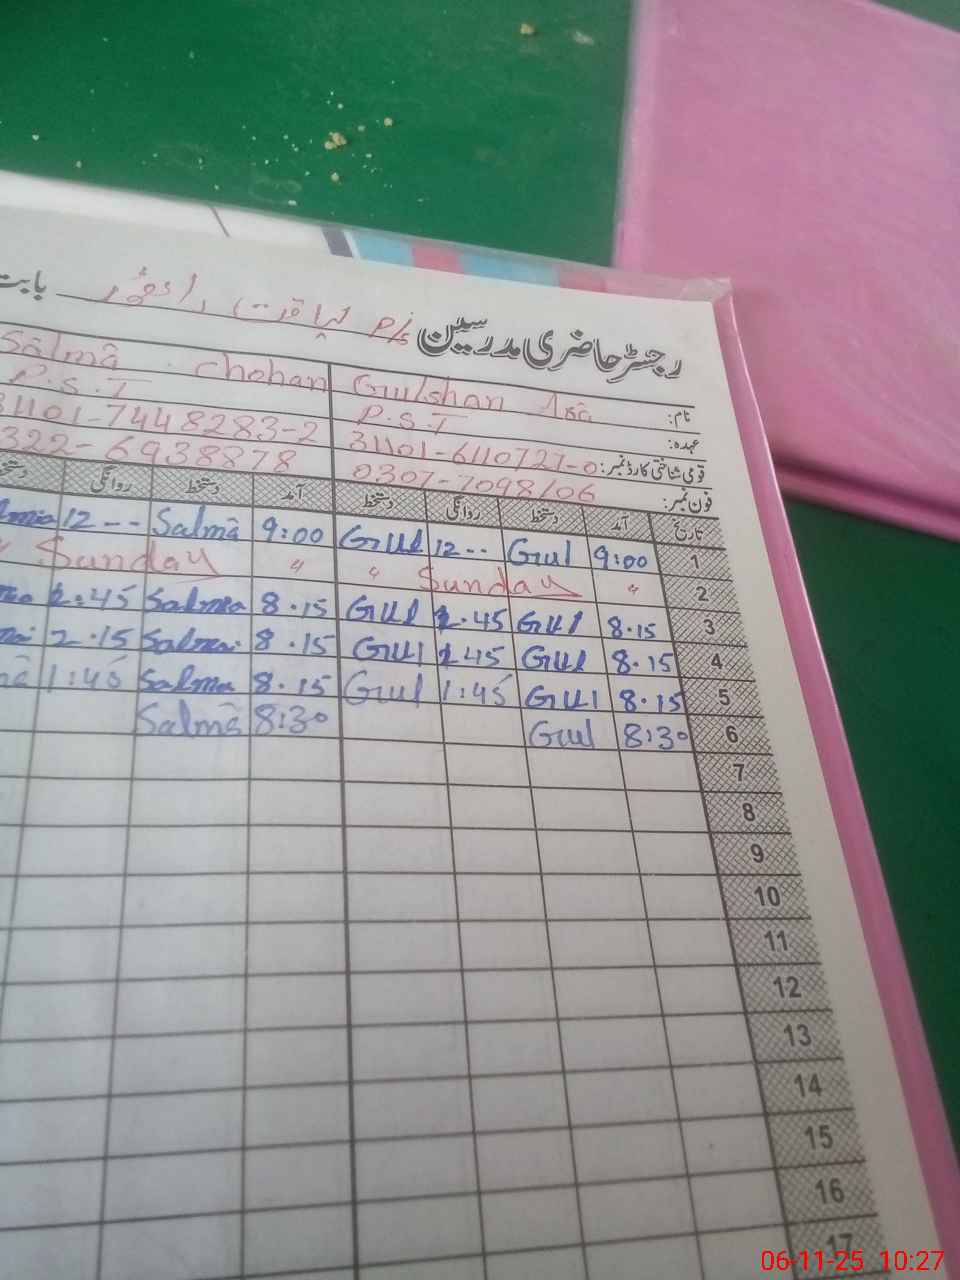 رجسٹر حاضری مدرسین P/S بابت
نام: Gulshan Ara Salma Chohan
عہدہ: P.S.T P.S.T
قومی شناختی کارڈ نمبر: 31101-6110727-0 31101-7448283-2
فون نمبر: 0307-7098106 0322-6938878
تاریخ آمد دستخط روانگی دستخط آمد دستخط روانگی
1 9:00 Gul 12-- Gul 9:00 Salma 12--
2 " Sunday " " Sunday "
3 8.15 Gul 2.45 Gul 8.15 Salma 2:45
4 8.15 Gul 2.45 Gul 8.15 Salma 2.15
5 8.15 Gul 1:45 Gul 8.15 Salma 1:45
6 8:30 Gul 8:30 Salma
7
8
9
10
11
12
13
14
15
16
17
06-11-25 10:27